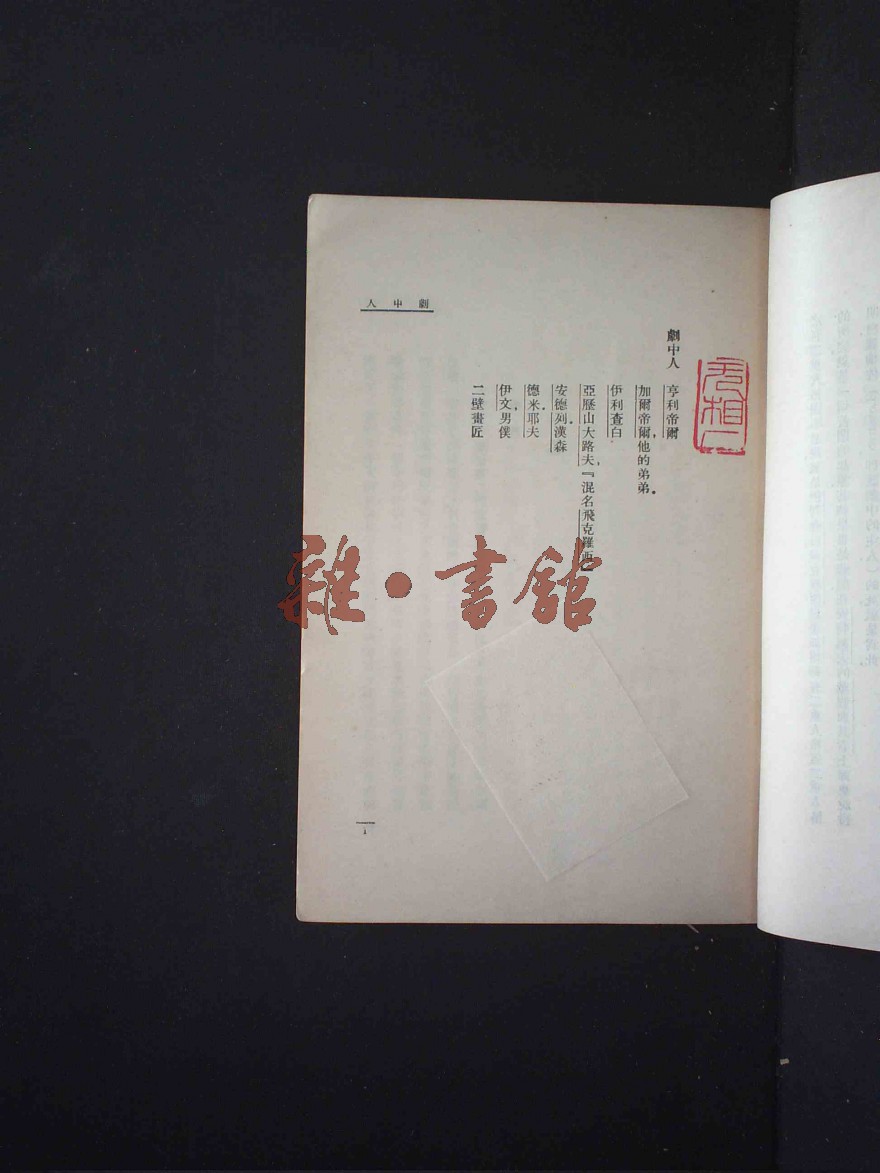 劇中人
劇中人　亨利帝爾
加爾帝爾，他的弟弟。
伊利查白
亞歷山大路夫，『混名飛克羅西』
安德列．漢森
德米．耶夫
伊文，男僕
二壁畫匠
1
雜·書館